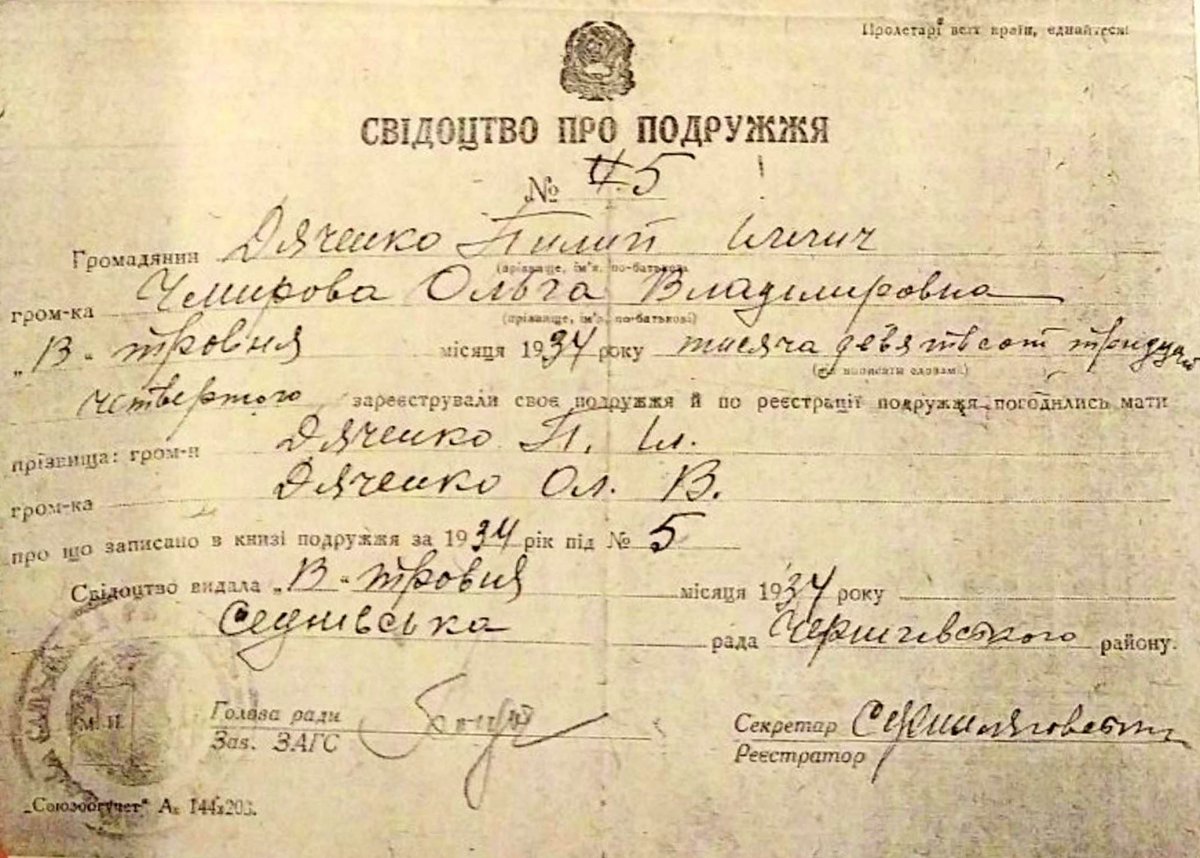 Пролетарі всіх країн, єднайтеся!
СВІДОЦТВО ПРО ПОДРУЖЖЯ
№ 5
Громадянин Дяченко Пилип Ілліч
(прізвище, ім'я, по-батькові)
гром-ка Ольга Владіміровна
(прізвище, ім'я, по-батькові)
„ “ місяця 1934 року тисяча девятьсот тридцять
(рік написати словами)
четвертого зареєстрували своє подружжя й по реєстрації подружжя погодились мати
прізвища: гром-н Дяченко П. Іл.
гром-ка Дяченко Ол. В.
про що записано в книзі подружжя за 1934 рік під № 5
Свідоцтво видала „ “ місяця 1934 року
Седнівська рада Чернігівського району.
М. П. Голова ради
Зав. ЗАГС
Секретар
Реєстратор
„Союзоргучет“ А₅ 144х203.